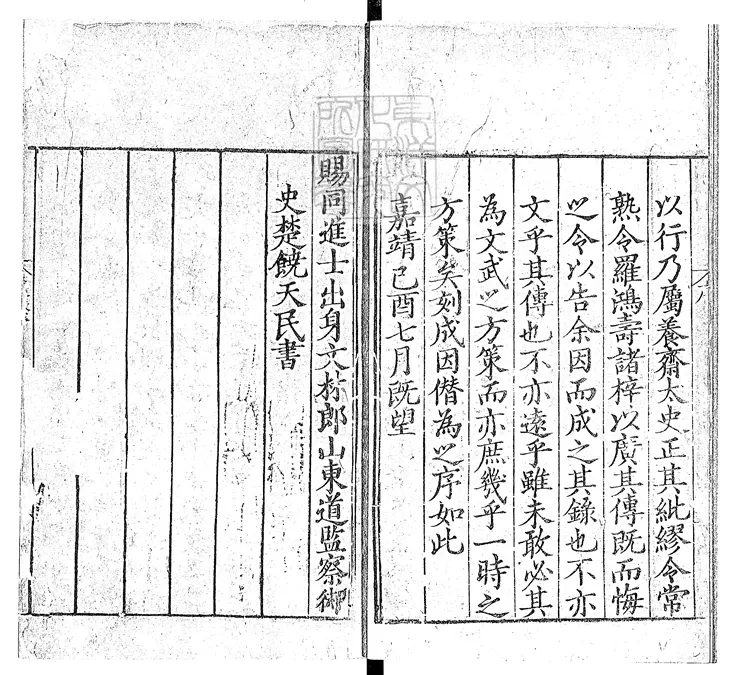 以行乃屬養齋太史正其紕繆令常
熟令羅鴻壽諸梓以廣其傳既而悔
之令以告余因而成之其錄也不亦
文乎其傳也不亦遠乎雖未敢必其
為文武之方策而亦庶幾乎一時之
方策矣刻成因僭為之序如此
嘉靖己酉七月既望
賜同進士出身文林郎山東道監察御
史楚饒天民書